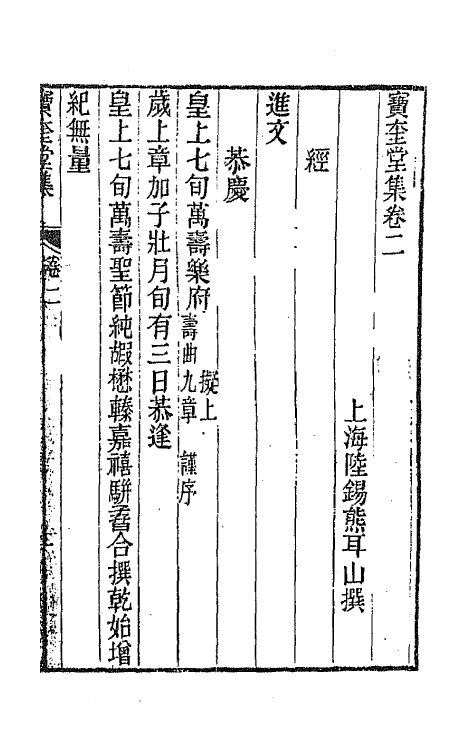 寶奎堂集卷二
上海陸錫熊耳山撰
經
進文
恭慶
皇上七旬萬壽樂府擬上壽曲九章 謹序
歲上章加子壯月旬有三日恭逢
皇上七旬萬壽聖節純嘏懋轃嘉禧駢舂合撰乾始增
紀無量
寶奎堂集 卷二